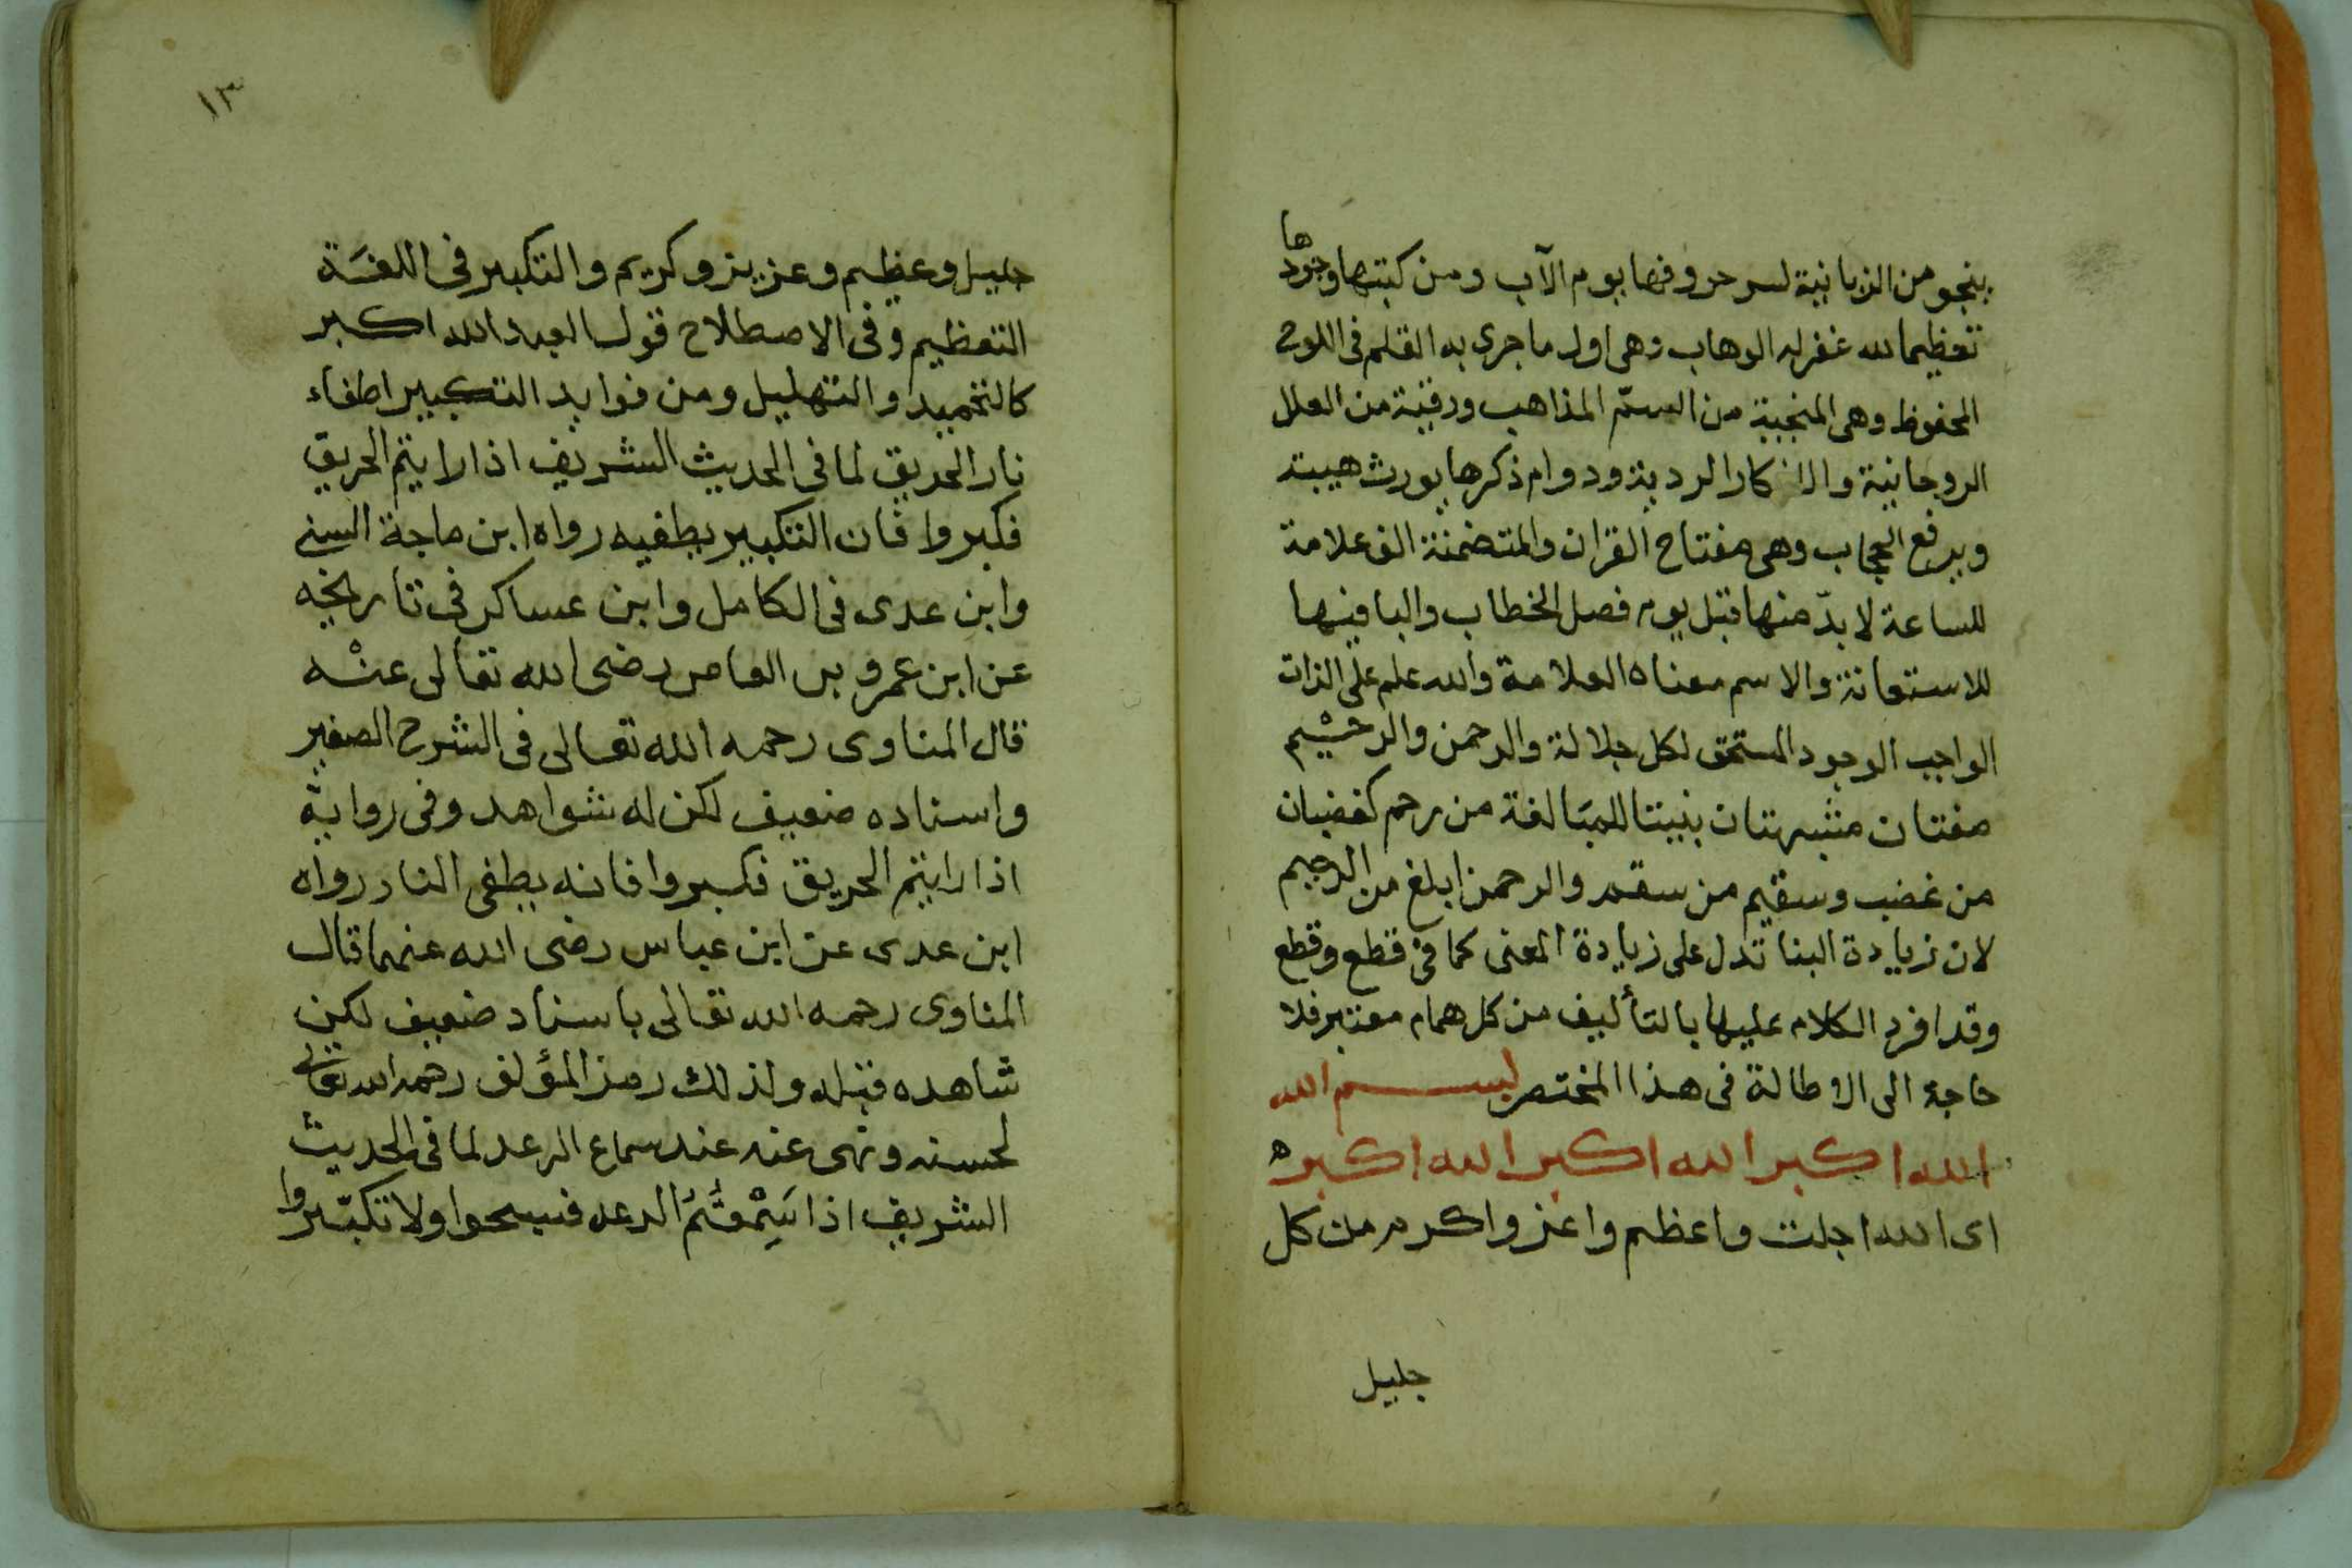 ينجو من الزبانية لسر حروفها يوم الآب ومن كتبها وجودها
تعظيما لله غفر له الوهاب وهى اول ما جرى به القلم فى اللوح
المحفوظ وهى المنجية من السم المذاهب ورقية من العلل
الروحانية والافكار الردية ودوام ذكرها يورث هيبة
ويرفع الحجاب وهى مفتاح القران والمتضمنة الف علامة
للساعة لا بدّ منها قبل يوم فصل الخطاب والبا فيها
للاستعانة والاسم معناه العلامة والله علم على الذات
الواجب الوجود المستحق لكل جلالة والرحمن والرحيم
صفتان مشبهتان بنيتا للمبالغة من رحم كغضبان
من غضب وسقيم من سقم والرحمن ابلغ من الرحيم
لان زيادة البنا تدل على زيادة المعنى كما فى قطع وقطع
وقد افرد الكلام عليها بالتأليف من كل همام معتبر فلا
حاجة الى الاطالة فى هذا المختصر بسم الله
الله اكبر الله اكبر الله اكبر ه
اى الله اجل واعظم واعز واكرم من كل
جليل
١٣
جليل وعظيم وعزيز وكريم والتكبير فى اللغة
التعظيم وفى الاصطلاح قول العبد الله اكبر
كالتحميد والتهليل ومن فوايد التكبير اطفاء
نار الحريق لما فى الحديث الشريف اذا رايتم الحريق
فكبروا فان التكبير يطفيه رواه ابن ماجة السنى
وابن عدى فى الكامل وابن عساكر فى تاريخه
عن ابن عمرو بن العاص رضى الله تعالى عنه
قال المناوى رحمه الله تعالى فى الشرح الصغير
واسناده ضعيف لكن له شواهد وفى رواية
اذا رايتم الحريق فكبروا فانه يطفى النار رواه
ابن عدى عن ابن عباس رضى الله عنهما قال
المناوى رحمه الله تعالى باسناد ضعيف لكن
شاهده قبله ولذلك رمز المؤلف رحمه الله تعالى
لحسنه ونهى عنه عند سماع الرعد لما فى الحديث
الشريف اذا سَمِعْتُمُ الرعد فسبحوا ولا تكبّروا